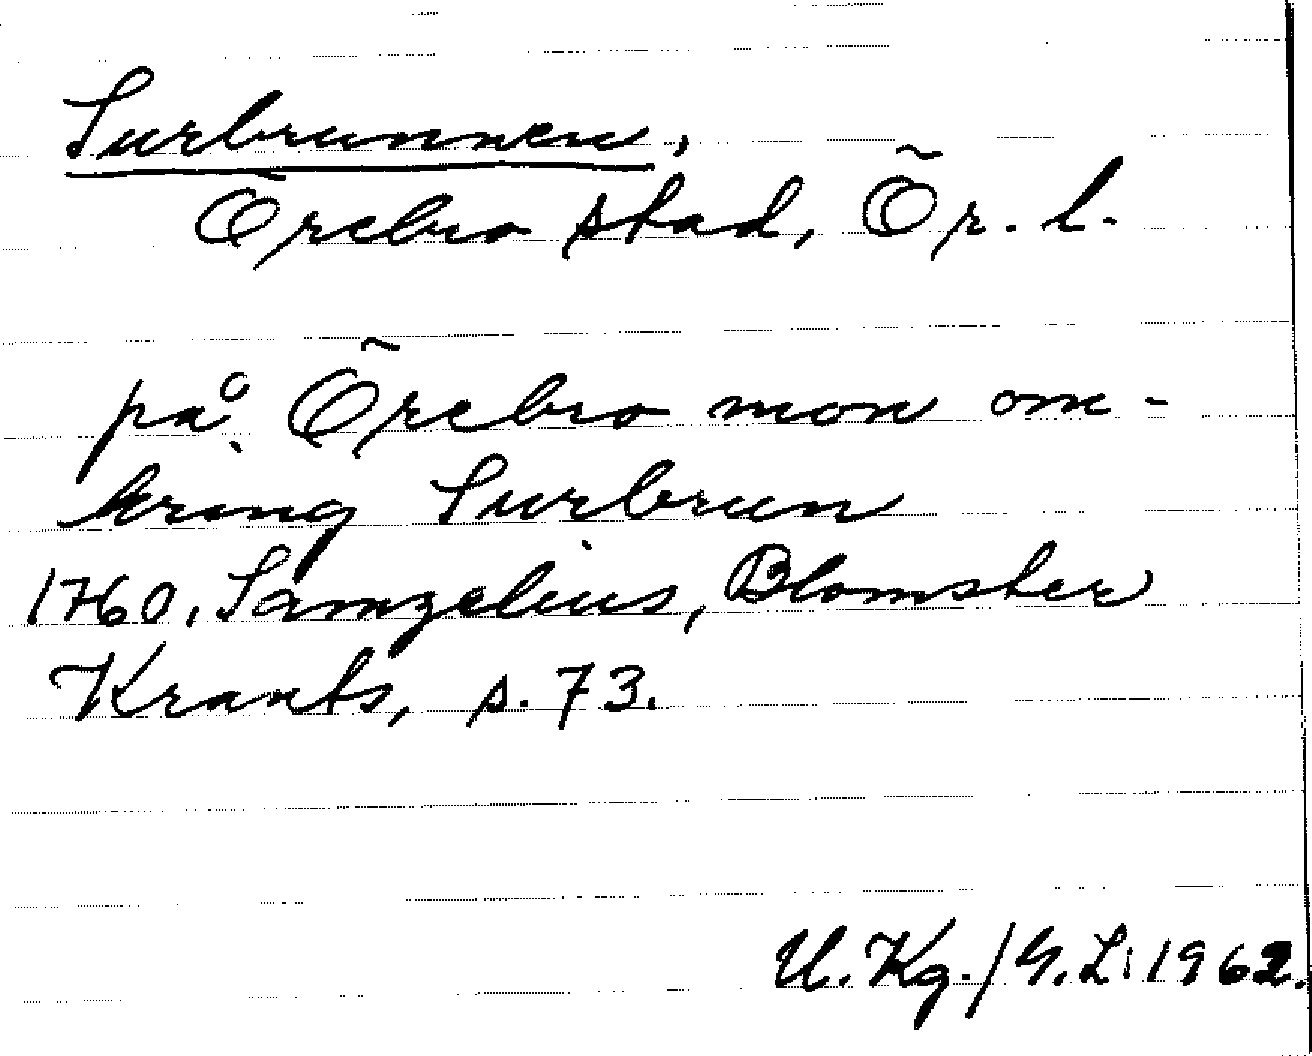 Surbrunnen,
Örebro stad, Ör. l.
på Örebro mon om-
kring Surbrun
1760, Samzelius, Blomster
Krants, s. 73.
U. Kg. / G. L. 1962.